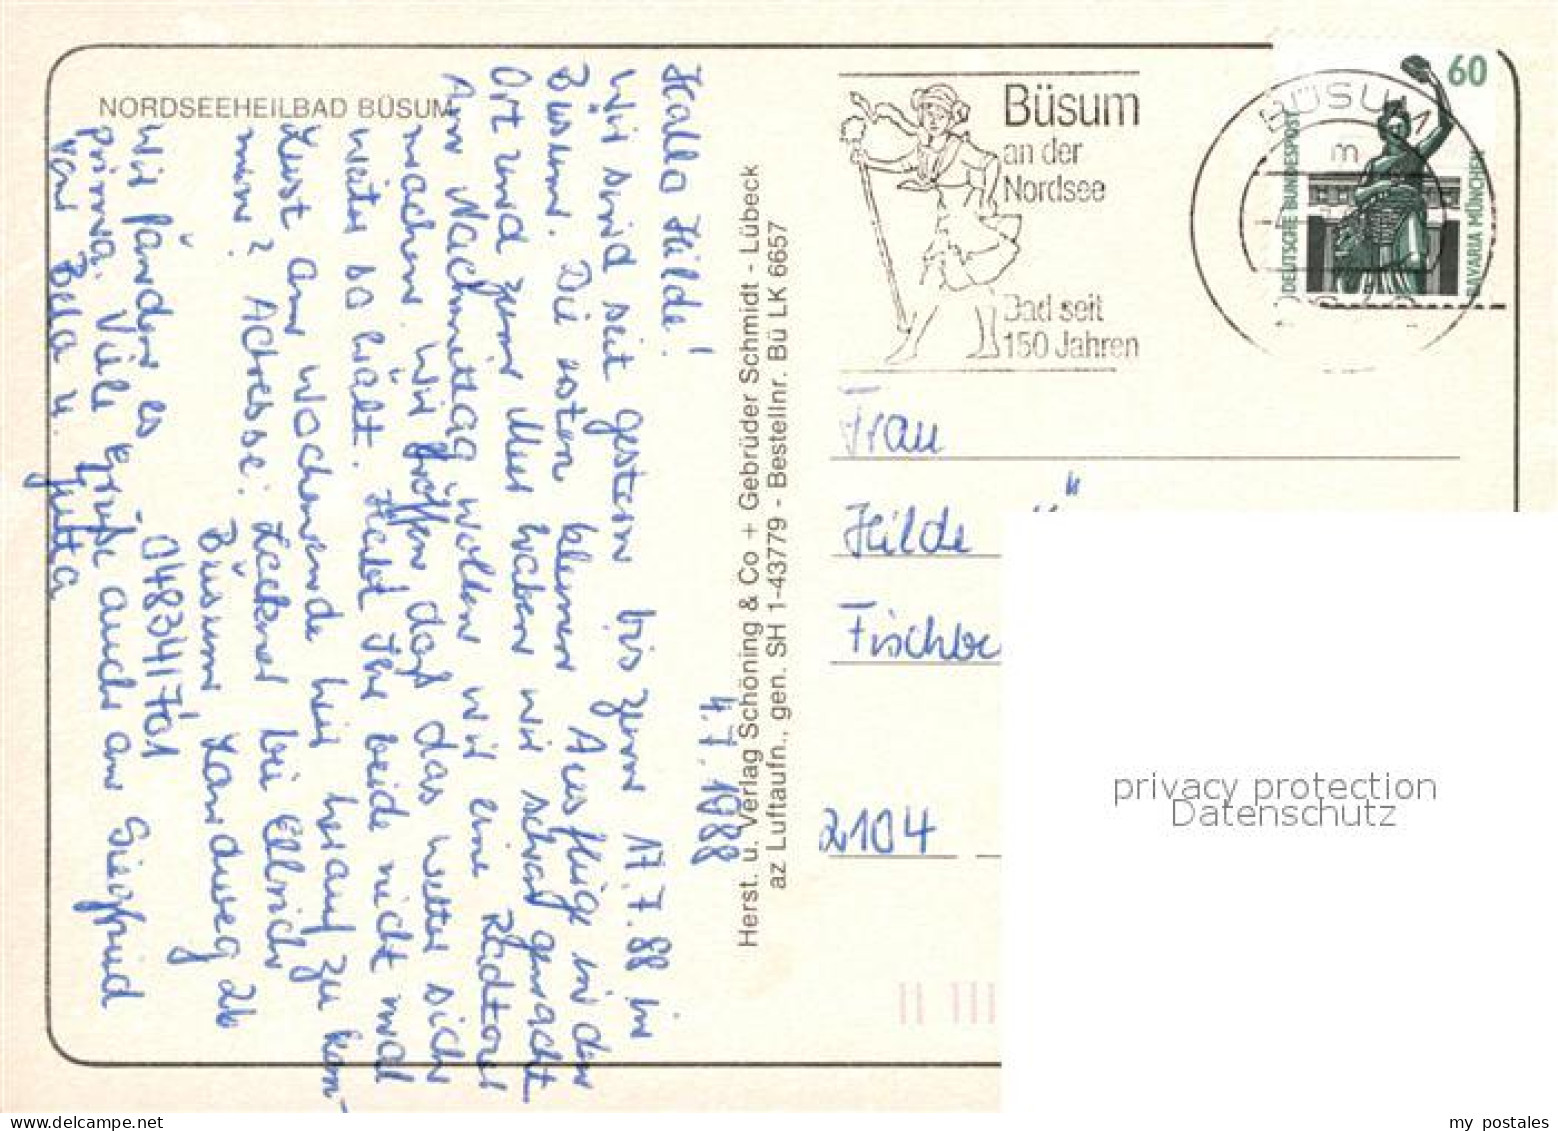 NORDSEEHEILBAD BÜSUM
4.7.1988
Hallo Hilde!
Wir sind seit gestern bis zum 17.7.88 in
Büsum. Die ersten kleinen Ausflüge in den
Ort und zum Meer haben wir schon gemacht
Am Nachmittag wollen wir eine Radtour
machen. Wir hoffen daß das Wetter sich
weiter so hält. Habt Ihr beide nicht mal
Lust am Wochenende hier herauf zu kom-
men? Adresse: Lackner bei Ellrich
Büsum Landweg 26
04834/1701
Wir fänden es
prima. Viele Grüße auch an Siegfried
von Bela u. Jutta
Herst. u. Verlag Schöning & Co + Gebrüder Schmidt - Lübeck
az Luftaufn., gen. SH 1-43779 - Bestellnr. Bü LK 6657
Büsum
an der
Nordsee
Bad seit
150 Jahren
BÜSUM
m
60
DEUTSCHE BUNDESPOST
BAVARIA MÜNCHEN
Frau
Hilde
Fischbe
2104
privacy protection
Datenschutz
my postales
www.delcampe.net